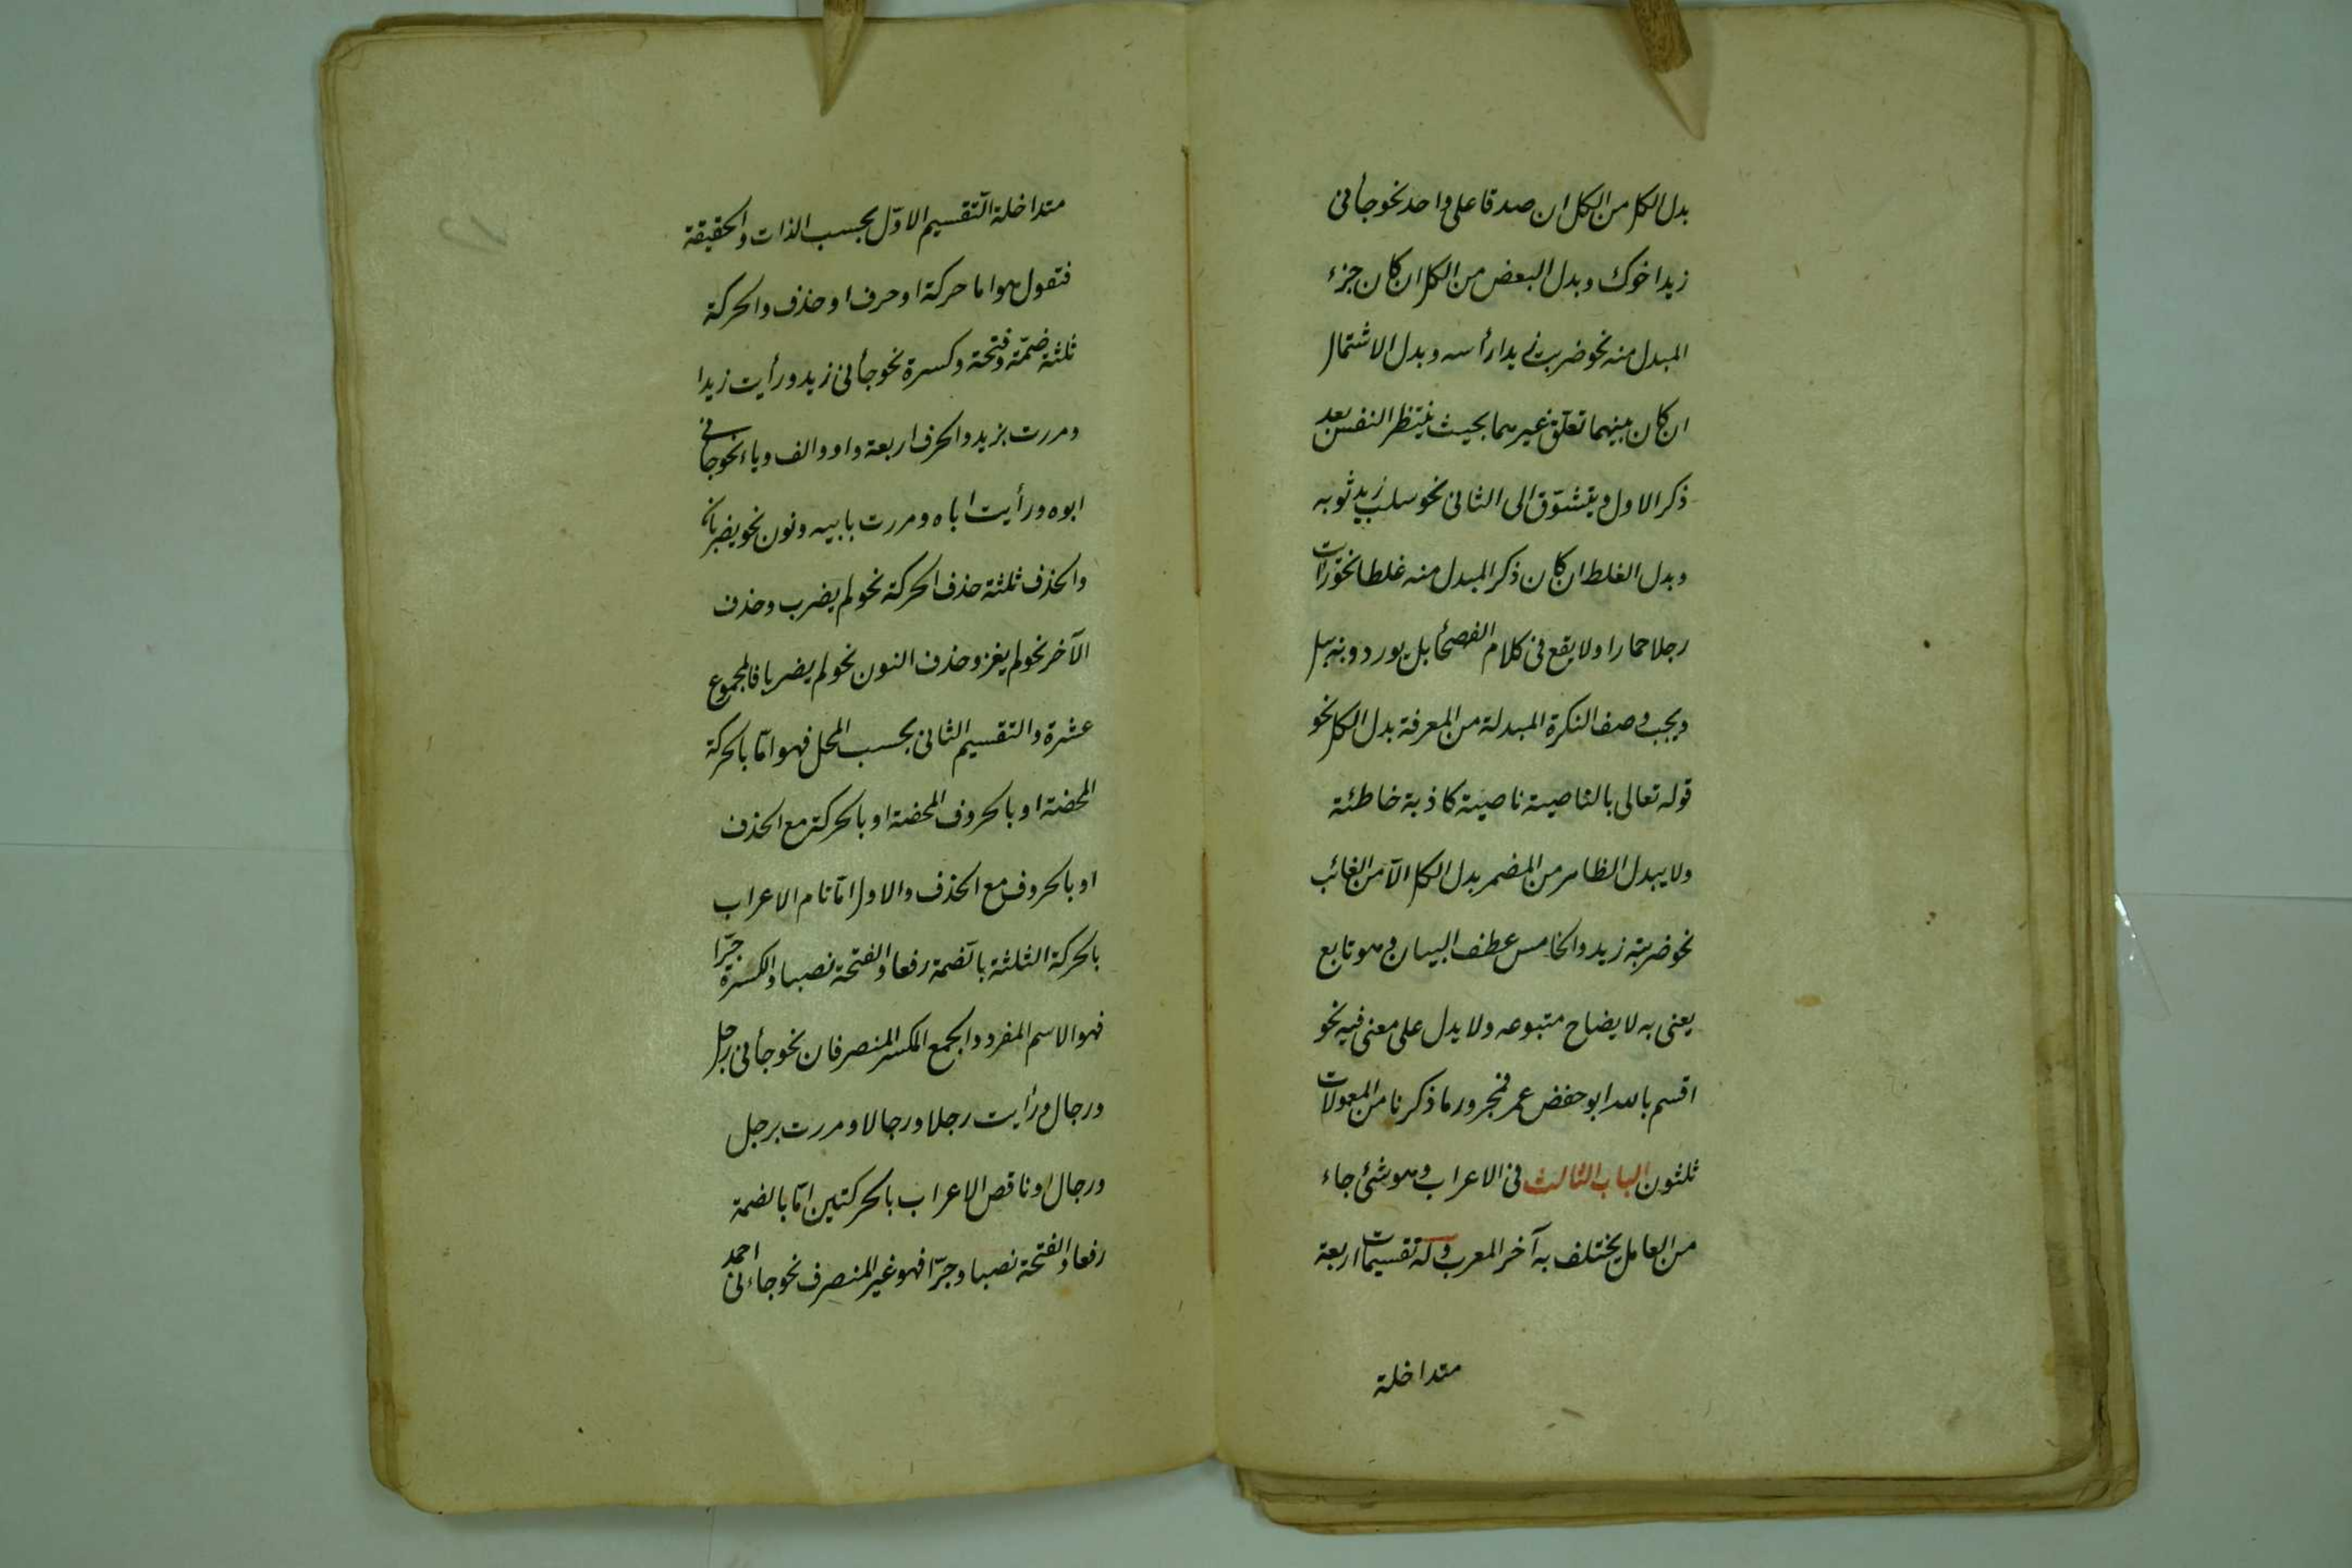 بدل الكل من الكل ان صدقا على واحد نحو جأنى
زيد اخوك وبدل البعض من الكل ان كان جزء
المبدل منه نحو ضربت زيدا رأسه وبدل الاشتمال
ان كان بينهما تعلق غيرهما بحيث ينتظر النفس بعد
ذكر الاول ويتشوق الى الثانى نحو سلب زيد ثوبه
وبدل الغلط ان كان ذكر المبدل منه غلطا نحو رأيت
رجلا حمارا ولا يقع فى كلام الفصحا بل يوردونه ببل
ويجب وصف النكرة المبدلة من المعرفة بدل الكل نحو
قوله تعالى بالناصية ناصية كاذبة خاطئة
ولا يبدل الظاهر من المضمر بدل الكل الا من الغائب
نحو ضربته زيد والخامس عطف البيان وهو تابع
يعنى به لايضاح متبوعه ولا يدل على معنى فيه نحو
اقسم بالله ابو حفض عمر فمجرور ما ذكرنا من المعمولات
ثلثون الباب الثالث فى الاعراب وهو شئ جاء
من العامل يختلف به آخر المعرب وله تقسيمات اربعة
متداخلة
متداخلة التقسيم الاوّل بحسب الذات والحقيقة
فتقول هو اما حركة او حرف او حذف والحركة
ثلثة ضمّة وفتحة وكسرة نحو جأنى زيد ورأيت زيدا
ومررت بزيد والحرف اربعة واو والف وياء نحو جانى
ابوه ورأيت اباه ومررت بابيه ونون نحو يضربان
والحذف ثلثة حذف الحركة نحو لم يضرب وحذف
الآخر نحو لم يغز وحذف النون نحو لم يضربا فالمجموع
عشرة والتقسيم الثانى بحسب المحل فهو امّا بالحركة
المحضة او بالحروف المحضة او بالحركة مع الحذف
او بالحروف مع الحذف والاول امّا تام الاعراب
بالحركة الثلثة بالضمة رفعا والفتحة نصبا والكسرة جرّا
فهو الاسم المفرد والجمع المكسر المنصرفان نحو جأنى رجل
ورجال ورأيت رجلا ورجالا ومررت برجل
ورجال او ناقص الاعراب بالحركتين امّا بالضمة
رفعا والفتحة نصبا وجرّا فهو غير المنصرف نحو جاءنى احمد